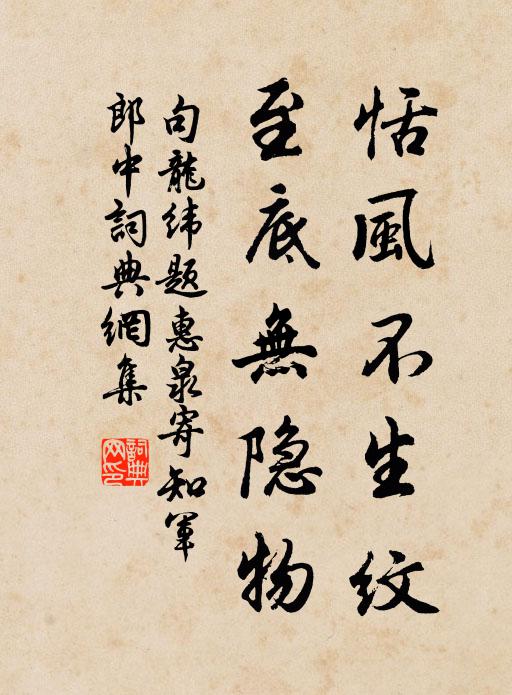 恬風不生紋
至底無隐物
句龍緯题惠泉寄知軍
郎中詞典網集
詞典网印